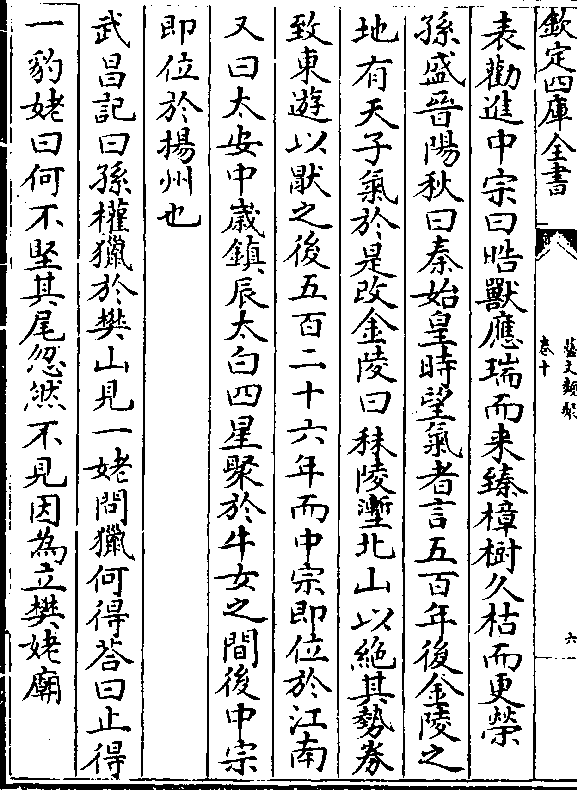 欽定四庫全書
藝文類聚
卷十
六
表勸進中宗曰晧獸應瑞而来臻樟樹久枯而更榮
孫盛晉陽秋曰秦始皇時望氣者言五百年後金陵之
地有天子氣於是改金陵曰秣陵壍北山以絶其勢劵
致東遊以猒之後五百二十六年而中宗即位於江南
又曰太安中嵗鎮辰太白四星聚於牛女之間後中宗
即位於楊州也
武昌記曰孫權獵於樊山見一姥問獵何得荅曰止得
一豹姥曰何不竪其尾忽然不見因為立樊姥廟